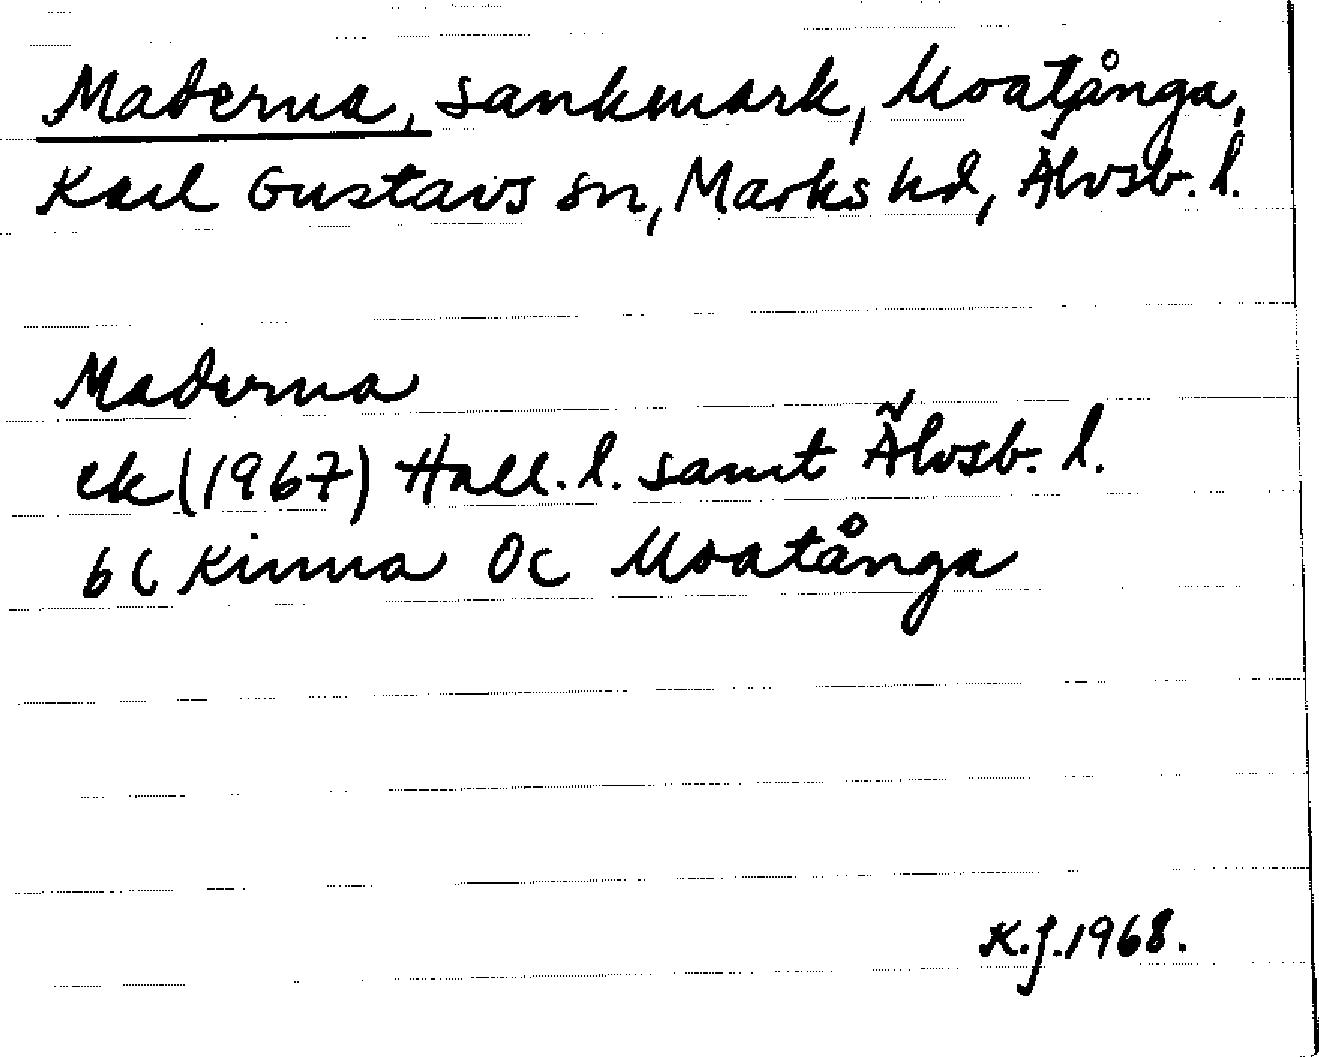 Maderna, sankmark, Moatånga,
Karl Gustavs sn, Marks hd, Älvsb. l.
Maderna
ek (1967) Hall. l. samt Älvsb. l.
6 C Kinna 0 C Moatånga
K.J. 1968.